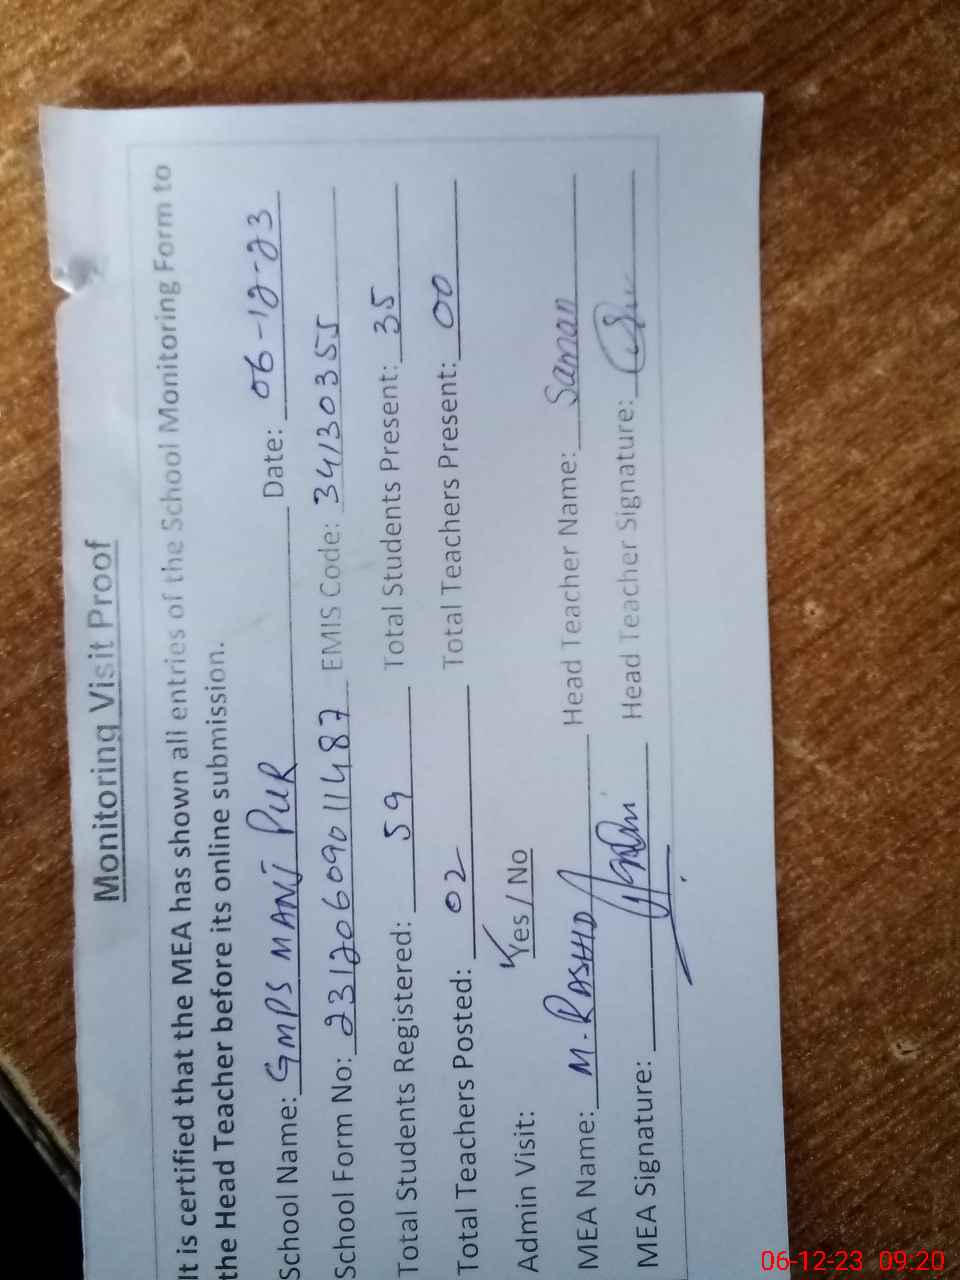 Monitoring Visit Proof
It is certified that the MEA has shown all entries of the School Monitoring Form to
the Head Teacher before its online submission.
School Name: GMPS MANI PUR Date: 06-12-23
School Form No: 23120609011487 EMIS Code: 34130355
Total Students Registered: 59 Total Students Present: 35
Total Teachers Posted: 02 Total Teachers Present: 00
Admin Visit: Yes / No
MEA Name: M. RASHID Head Teacher Name: Saman
MEA Signature: Head Teacher Signature:
06-12-23 09:20